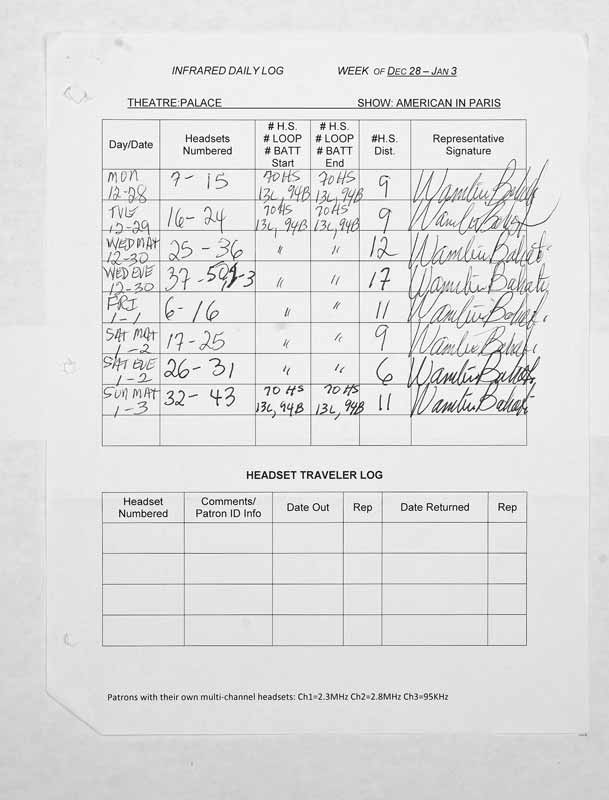 INFRARED DAILY LOG WEEK OF DEC 28 – JAN 3
THEATRE:PALACE SHOW: AMERICAN IN PARIS
Day/Date Headsets Numbered # H.S. # LOOP # BATT Start # H.S. # LOOP # BATT End #H.S. Dist. Representative Signature
MON 12-28 7-15 70 HS 13L, 94B 70 HS 13L, 94B 9 Wambui Bahati
TUE 12-29 16-24 70 HS 13L, 94B 70 HS 13L, 94B 9 Wambui Bahati
WED MAT 12-30 25-36 " " 12 Wambui Bahati
WED EVE 12-30 37-50, 1-3 " " 17 Wambui Bahati
FRI 1-1 6-16 " " 11 Wambui Bahati
SAT MAT 1-2 17-25 " " 9 Wambui Bahati
SAT EVE 1-2 26-31 " " 6 Wambui Bahati
SUN MAT 1-3 32-43 70 HS 13L, 94B 70 HS 13L, 94B 11 Wambui Bahati
HEADSET TRAVELER LOG
Headset Numbered Comments/ Patron ID Info Date Out Rep Date Returned Rep
Patrons with their own multi-channel headsets: Ch1=2.3MHz Ch2=2.8MHz Ch3=95KHz